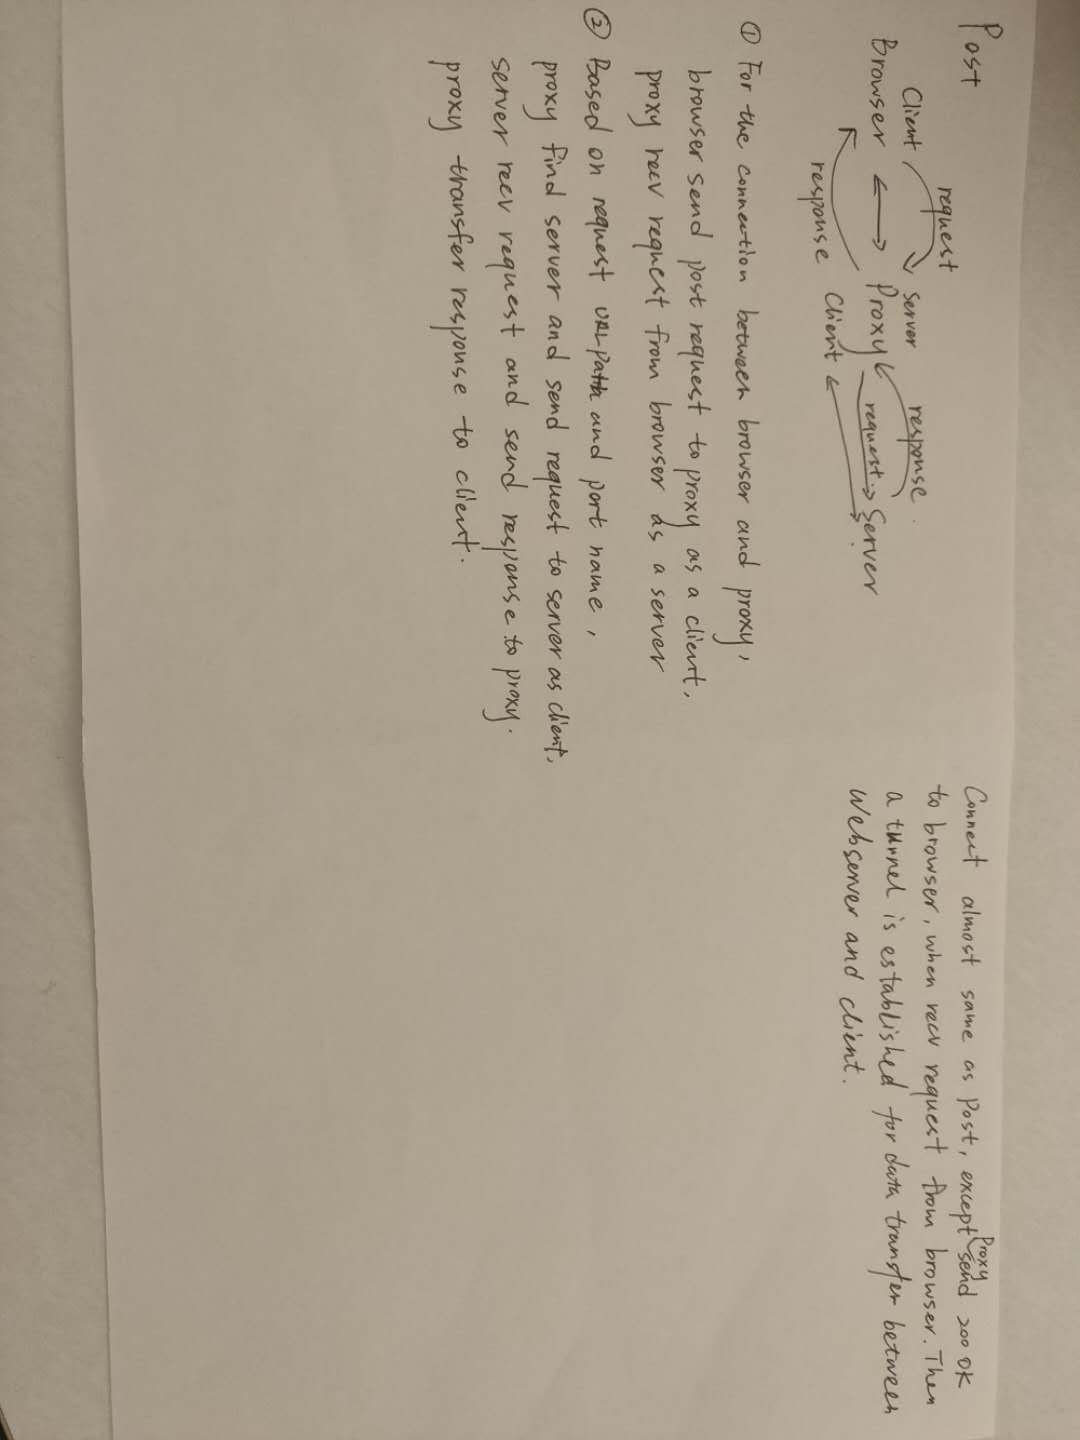 Post
request
response
Client
Server
Browser
Proxy
request
Server
response
Client
① For the connection between browser and proxy,
browser send post request to proxy as a client,
proxy recv request from browser as a server
② Based on request URL path and port name,
proxy find server and send request to server as client,
server recv request and send response to proxy.
proxy transfer response to client.
Connect almost same as Post, except Proxy send 200 OK
to browser, when recv request from browser. Then
a tunnel is established for data transfer between
Webserver and client.